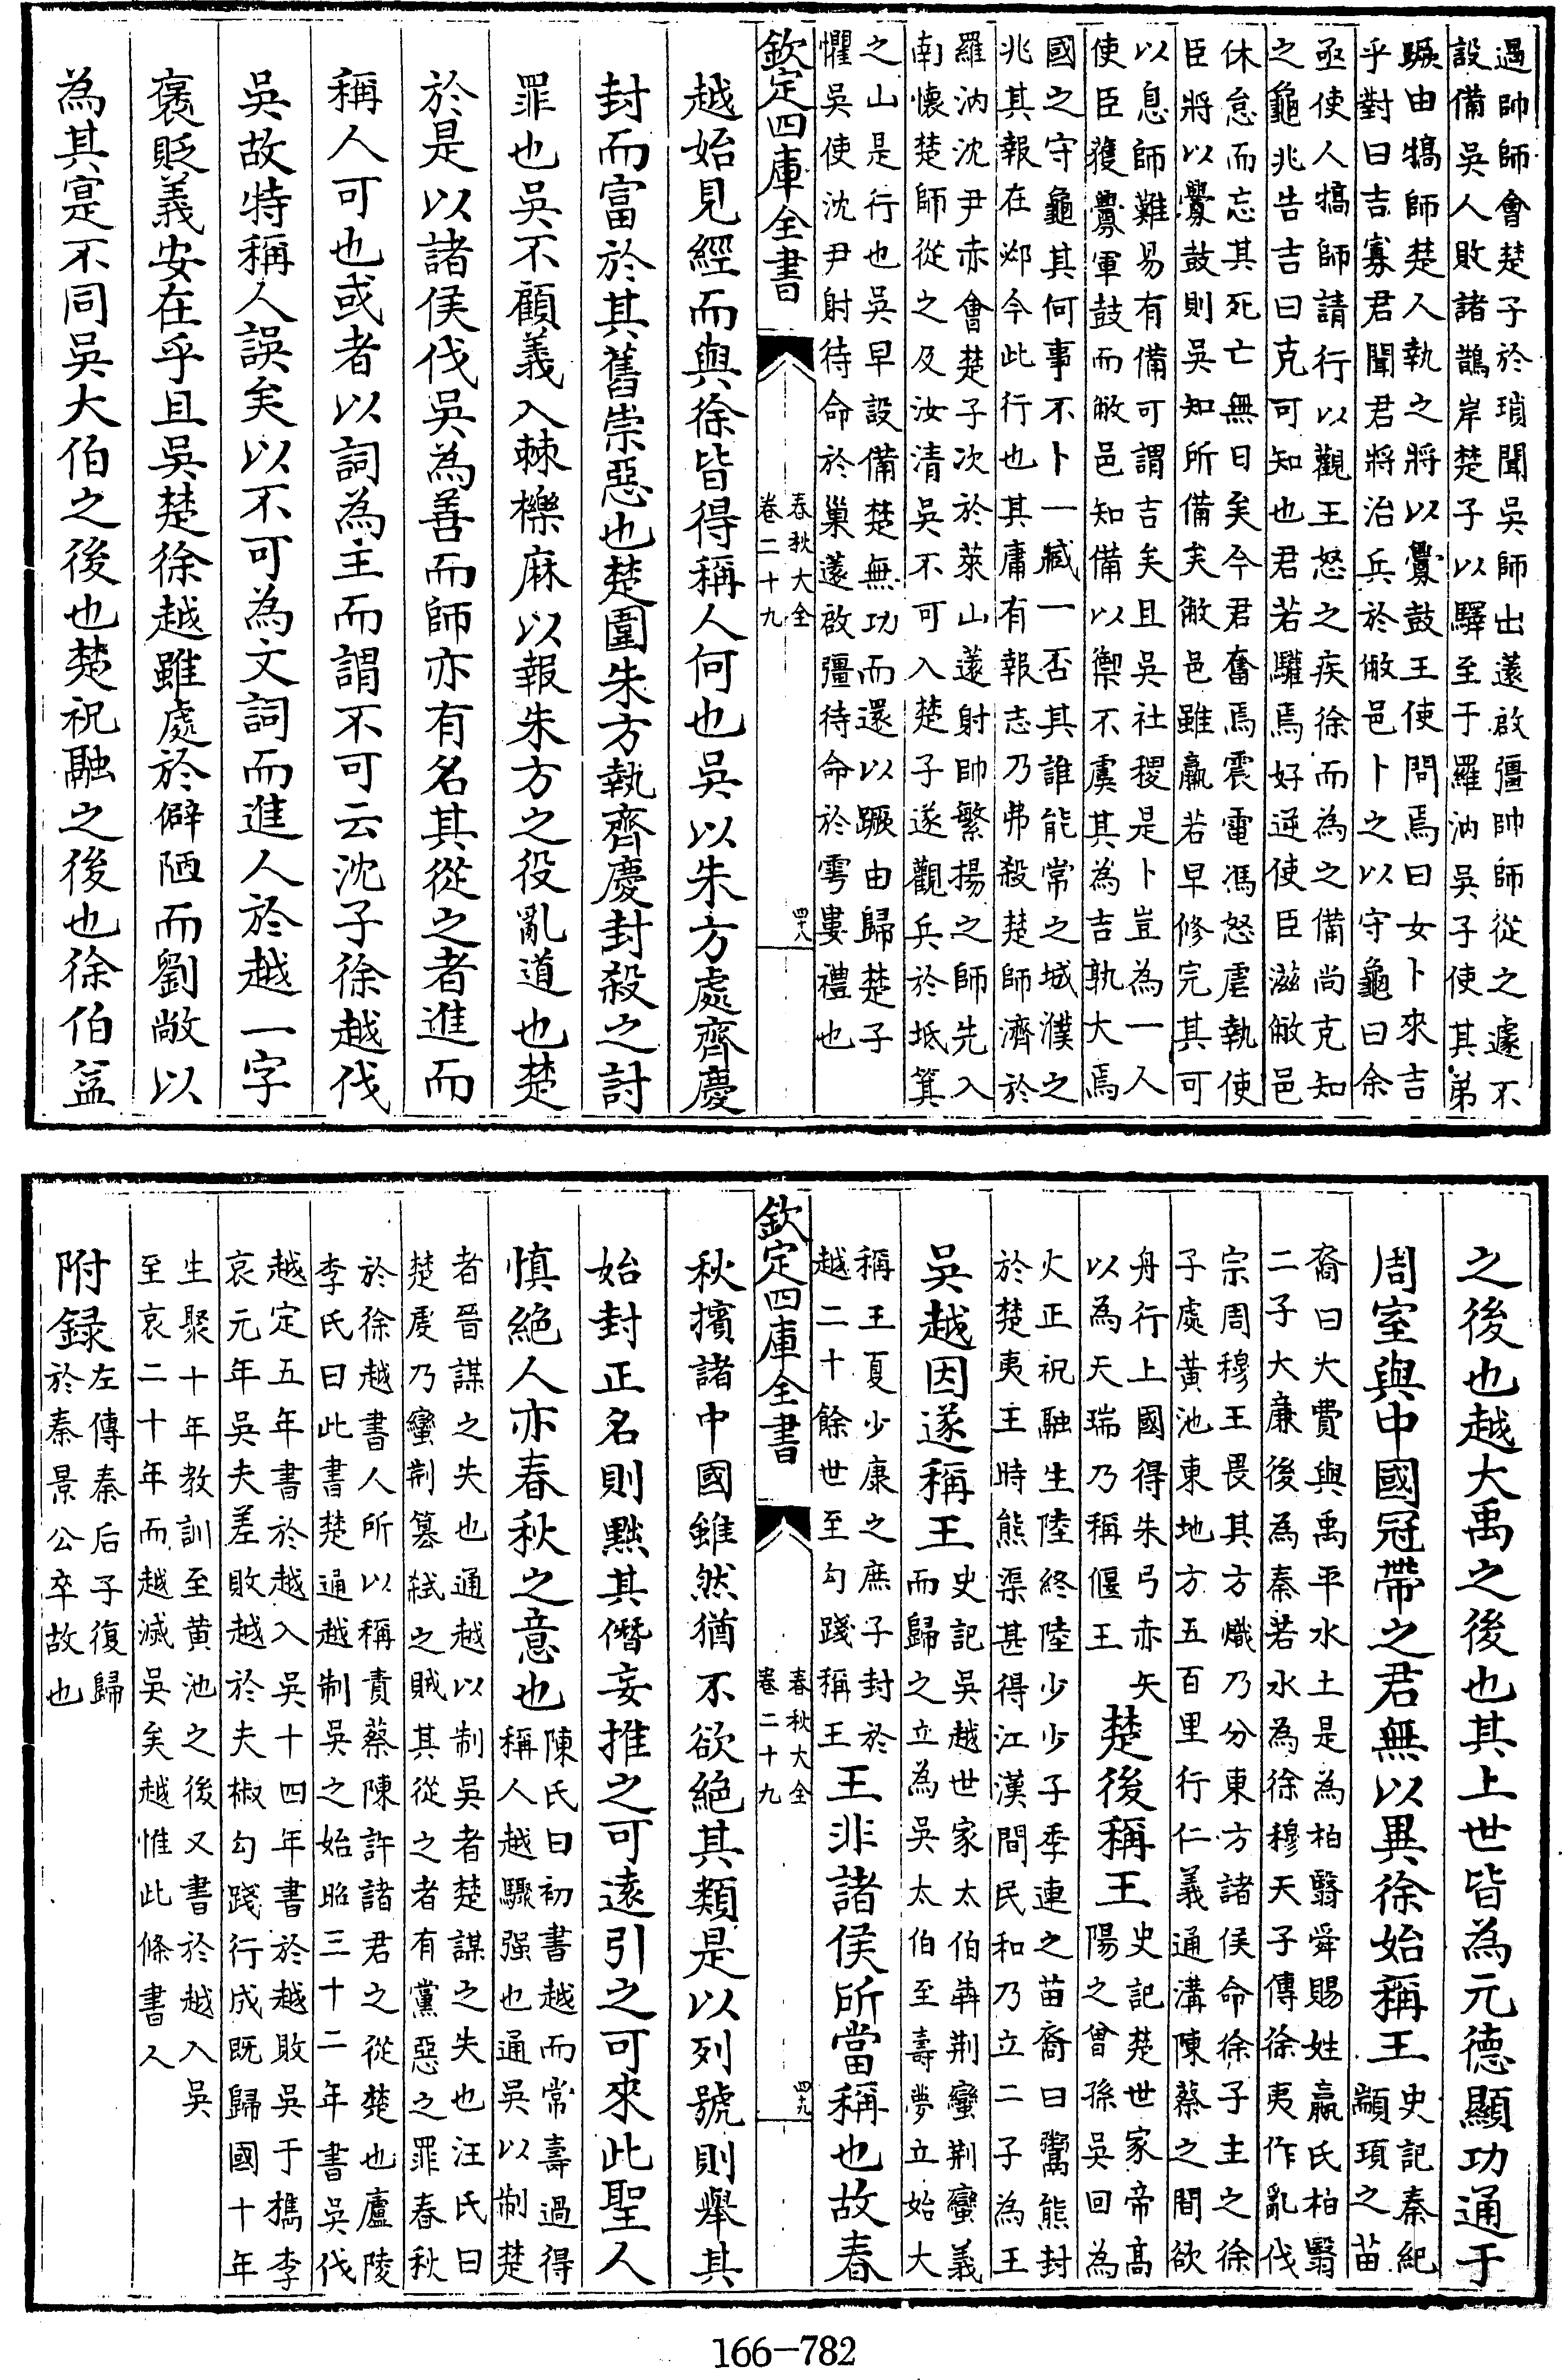 過帥師會楚子於瑣聞吳師出薳啟彊帥師從之遽不
設備吳人敗諸鵲岸楚子以驛至于羅汭吳子使其弟
蹶由犒師楚人執之將以釁鼓王使問焉曰女卜來吉
乎對曰吉寡君聞君將治兵於敝邑卜之以守龜曰余
亟使人犒師請行以觀王怒之疾徐而為之備尚克知
之龜兆告吉曰克可知也君若驩焉好逆使臣滋敝邑
休怠而忘其死亡無日矣今君奮焉震電馮怒虐執使
臣將以釁鼓則吳知所備矣敝邑雖羸若早修完其可
以息師難易有備可謂吉矣且吳社稷是卜豈為一人
使臣獲釁軍鼓而敝邑知備以禦不虞其為吉孰大焉
國之守龜其何事不卜一臧一否其誰能常之城濮之
兆其報在邲今此行也其庸有報志乃弗殺楚師濟於
羅汭沈尹赤會楚子次於萊山薳射帥繁揚之師先入
南懷楚師從之及汝清吳不可入楚子遂觀兵於坻箕
之山是行也吳早設備楚無功而還以蹶由歸楚子
懼吳使沈尹射待命於巢薳啟彊待命於雩婁禮也
欽定四庫全書
春秋大全
卷二十九
四十八
越始見經而與徐皆得稱人何也吳以朱方處齊慶
封而富於其舊崇惡也楚圍朱方執齊慶封殺之討
罪也吳不顧義入棘櫟麻以報朱方之役亂道也楚
於是以諸侯伐吳為善而師亦有名其從之者進而
稱人可也或者以詞為主而謂不可云沈子徐越伐
吳故特稱人誤矣以不可為文詞而進人於越一字
褒貶義安在乎且吳楚徐越雖處於僻陋而劉敞以
為其寔不同吳大伯之後也楚祝融之後也徐伯益
之後也越大禹之後也其上世皆為元德顯功通于
周室與中國冠帶之君無以異徐始稱王史記秦紀
顓頊之苗
裔曰大費與禹平水土是為柏翳舜賜姓嬴氏柏翳
二子大廉後為秦若水為徐穆天子傳徐夷作亂伐
宗周穆王畏其方熾乃分東方諸侯命徐子主之徐
子處黃池東地方五百里行仁義通溝陳蔡之間欲
舟行上國得朱弓赤矢
以為天瑞乃稱偃王
楚後稱王史記楚世家帝高
陽之曾孫吳回為
火正祝融生陸終陸少少子季連之苗裔曰鬻熊封
於楚夷王時熊渠甚得江漢間民和乃立二子為王
吳越因遂稱王史記吳越世家太伯犇荆蠻荆蠻義
而歸之立為吳太伯至壽夢立始大
稱王夏少康之庶子封於
越二十餘世至勾踐稱王
王非諸侯所當稱也故春
欽定四庫全書
春秋大全
卷二十九
四十九
秋擯諸中國雖然猶不欲絕其類是以列號則舉其
始封正名則黜其僭妄推之可遠引之可來此聖人
慎絕人亦春秋之意也陳氏曰初書越而常壽過得
稱人越驟强也通吳以制楚
者晉謀之失也通越以制吳者楚謀之失也汪氏曰
楚虔乃蠻荆篡弒之賊其從之者有黨惡之罪春秋
於徐越書人所以稱責蔡陳許諸君之從楚也廬陵
李氏曰此書楚通越制吳之始昭三十二年書吳伐
越定五年書於越入吳十四年書於越敗吳于檇李
哀元年吳夫差敗越於夫椒勾踐行成既歸國十年
生聚十年教訓至黄池之後又書於越入吳
至哀二十年而越滅吳矣越惟此條書人
附録左傳秦后子復歸
於秦景公卒故也
166—782